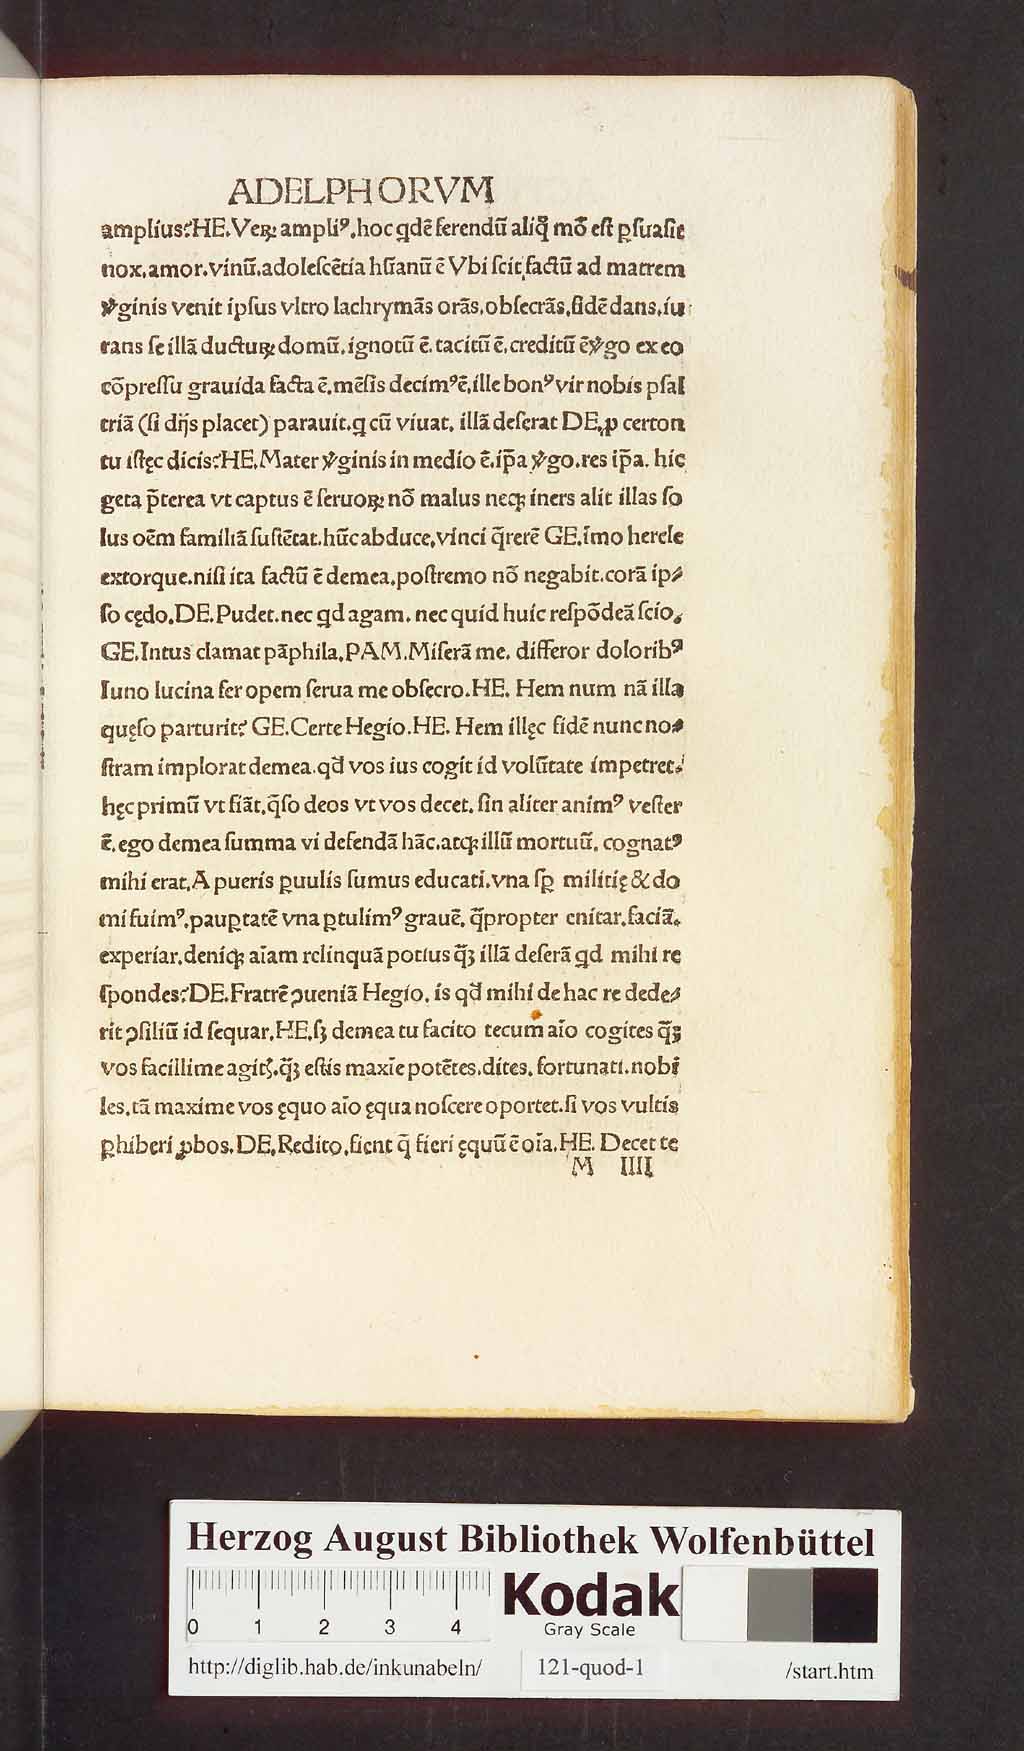 ADELPHORVM
amplius?HE.Veꝝ ampliꝰ.hoc qdē ferendū aliq̄ mō est ꝑsuasit
nox.amor.vinū.adolescētia hūanū ē Vbi scit factū ad matrem
v̉ginis venit ipsus vltro lachrymās orās.obsecrās.fidē dans.iu
rans se illā ductuꝝ domū.ignotū ē.tacitū ē.creditū ē v̉go ex eo
cōpressu grauida facta ē.mēsis decimꝰ ē.ille bonꝰ vir nobis psal
triā (si dijs placet) parauit.q cū viuat. illā deserat DE.ꝓ certon
tu istęc dicis?HE.Mater v̉ginis in medio ē.ip̄a v̉go.res ip̄a. hic
geta p̄terea vt captus ē seruoꝝ nō malus neqꝫ iners alit illas so
lus oēm familiā sustētat.hūc abduce.vinci q̄rerē GE.īmo hercle
extorque.nisi ita factū ē demea.postremo nō negabit.corā ip⸗
so cędo.DE.Pudet.nec qd agam. nec quid huic respōdeā scio.
GE.Intus clamat pāphila.PAM.Miserā me. differor doloribꝰ
Iuno lucina fer opem serua me obsecro.HE. Hem num nā illa
quęso parturit? GE.Certe Hegio.HE. Hem illęc fidē nunc no⸗
stram implorat demea.qd̄ vos ius cogit id volūtate impetret.
hęc primū vt fiāt.q̄so deos vt vos decet. sin aliter animꝰ vester
ē.ego demea summa vi defendā hāc.atqꝫ illū mortuū. cognatꝰ
mihi erat.A pueris ꝑuulis sumus educati.vna sꝑ militię & do
mi fuimꝰ.pauꝑtatē vna ꝑtulimꝰ grauē. q̄propter enitar.faciā.
experiar.deniqꝫ aīam relinquā potius q̄ꝫ illā deserā qd mihi re
spondes?DE.Fratrē ꝯueniā Hegio. is qd̄ mihi de hac re dede⸗
rit ꝯsiliū id sequar.HE.sꝫ demea tu facito tecum aīo cogites q̄ꝫ
vos facillime agitꝭ.q̄ꝫ estis maxīe potētes.dites. fortunati.nobi
les.tā maxime vos ęquo aīo ęqua noscere oportet.si vos vultis
ꝑhiberi ꝓbos.DE.Redito.fient q̄ fieri ęquū ē oīa.HE. Decet te
M IIII
Herzog August Bibliothek Wolfenbüttel
0 1 2 3 4
Kodak
Gray Scale
http://diglib.hab.de/inkunabeln/ 121-quod-1 /start.htm